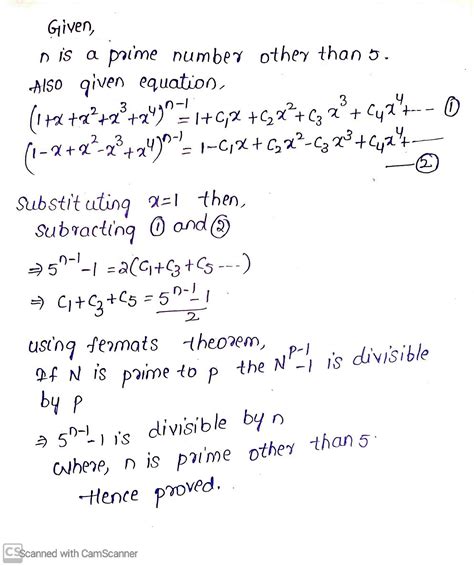 Given,
n is a prime number other than 5.
Also given equation,
(1+x+x²+x³+x⁴)ⁿ⁻¹ = 1+C₁x+C₂x²+C₃x³+C₄x⁴+--- ①
(1-x+x²-x³+x⁴)ⁿ⁻¹ = 1-C₁x+C₂x²-C₃x³+C₄x⁴+---
—②
Substituting x=1 then,
Subracting ① and ②
⇒ 5ⁿ⁻¹-1 = 2(C₁+C₃+C₅ ---)
⇒ C₁+C₃+C₅ = 5ⁿ⁻¹-1
2
using fermats theorem,
If N is prime to p the Nᵖ⁻¹-1 is divisible
by p
⇒ 5ⁿ⁻¹-1 is divisible by n
where, n is prime other than 5.
Hence proved.
CS Scanned with CamScanner